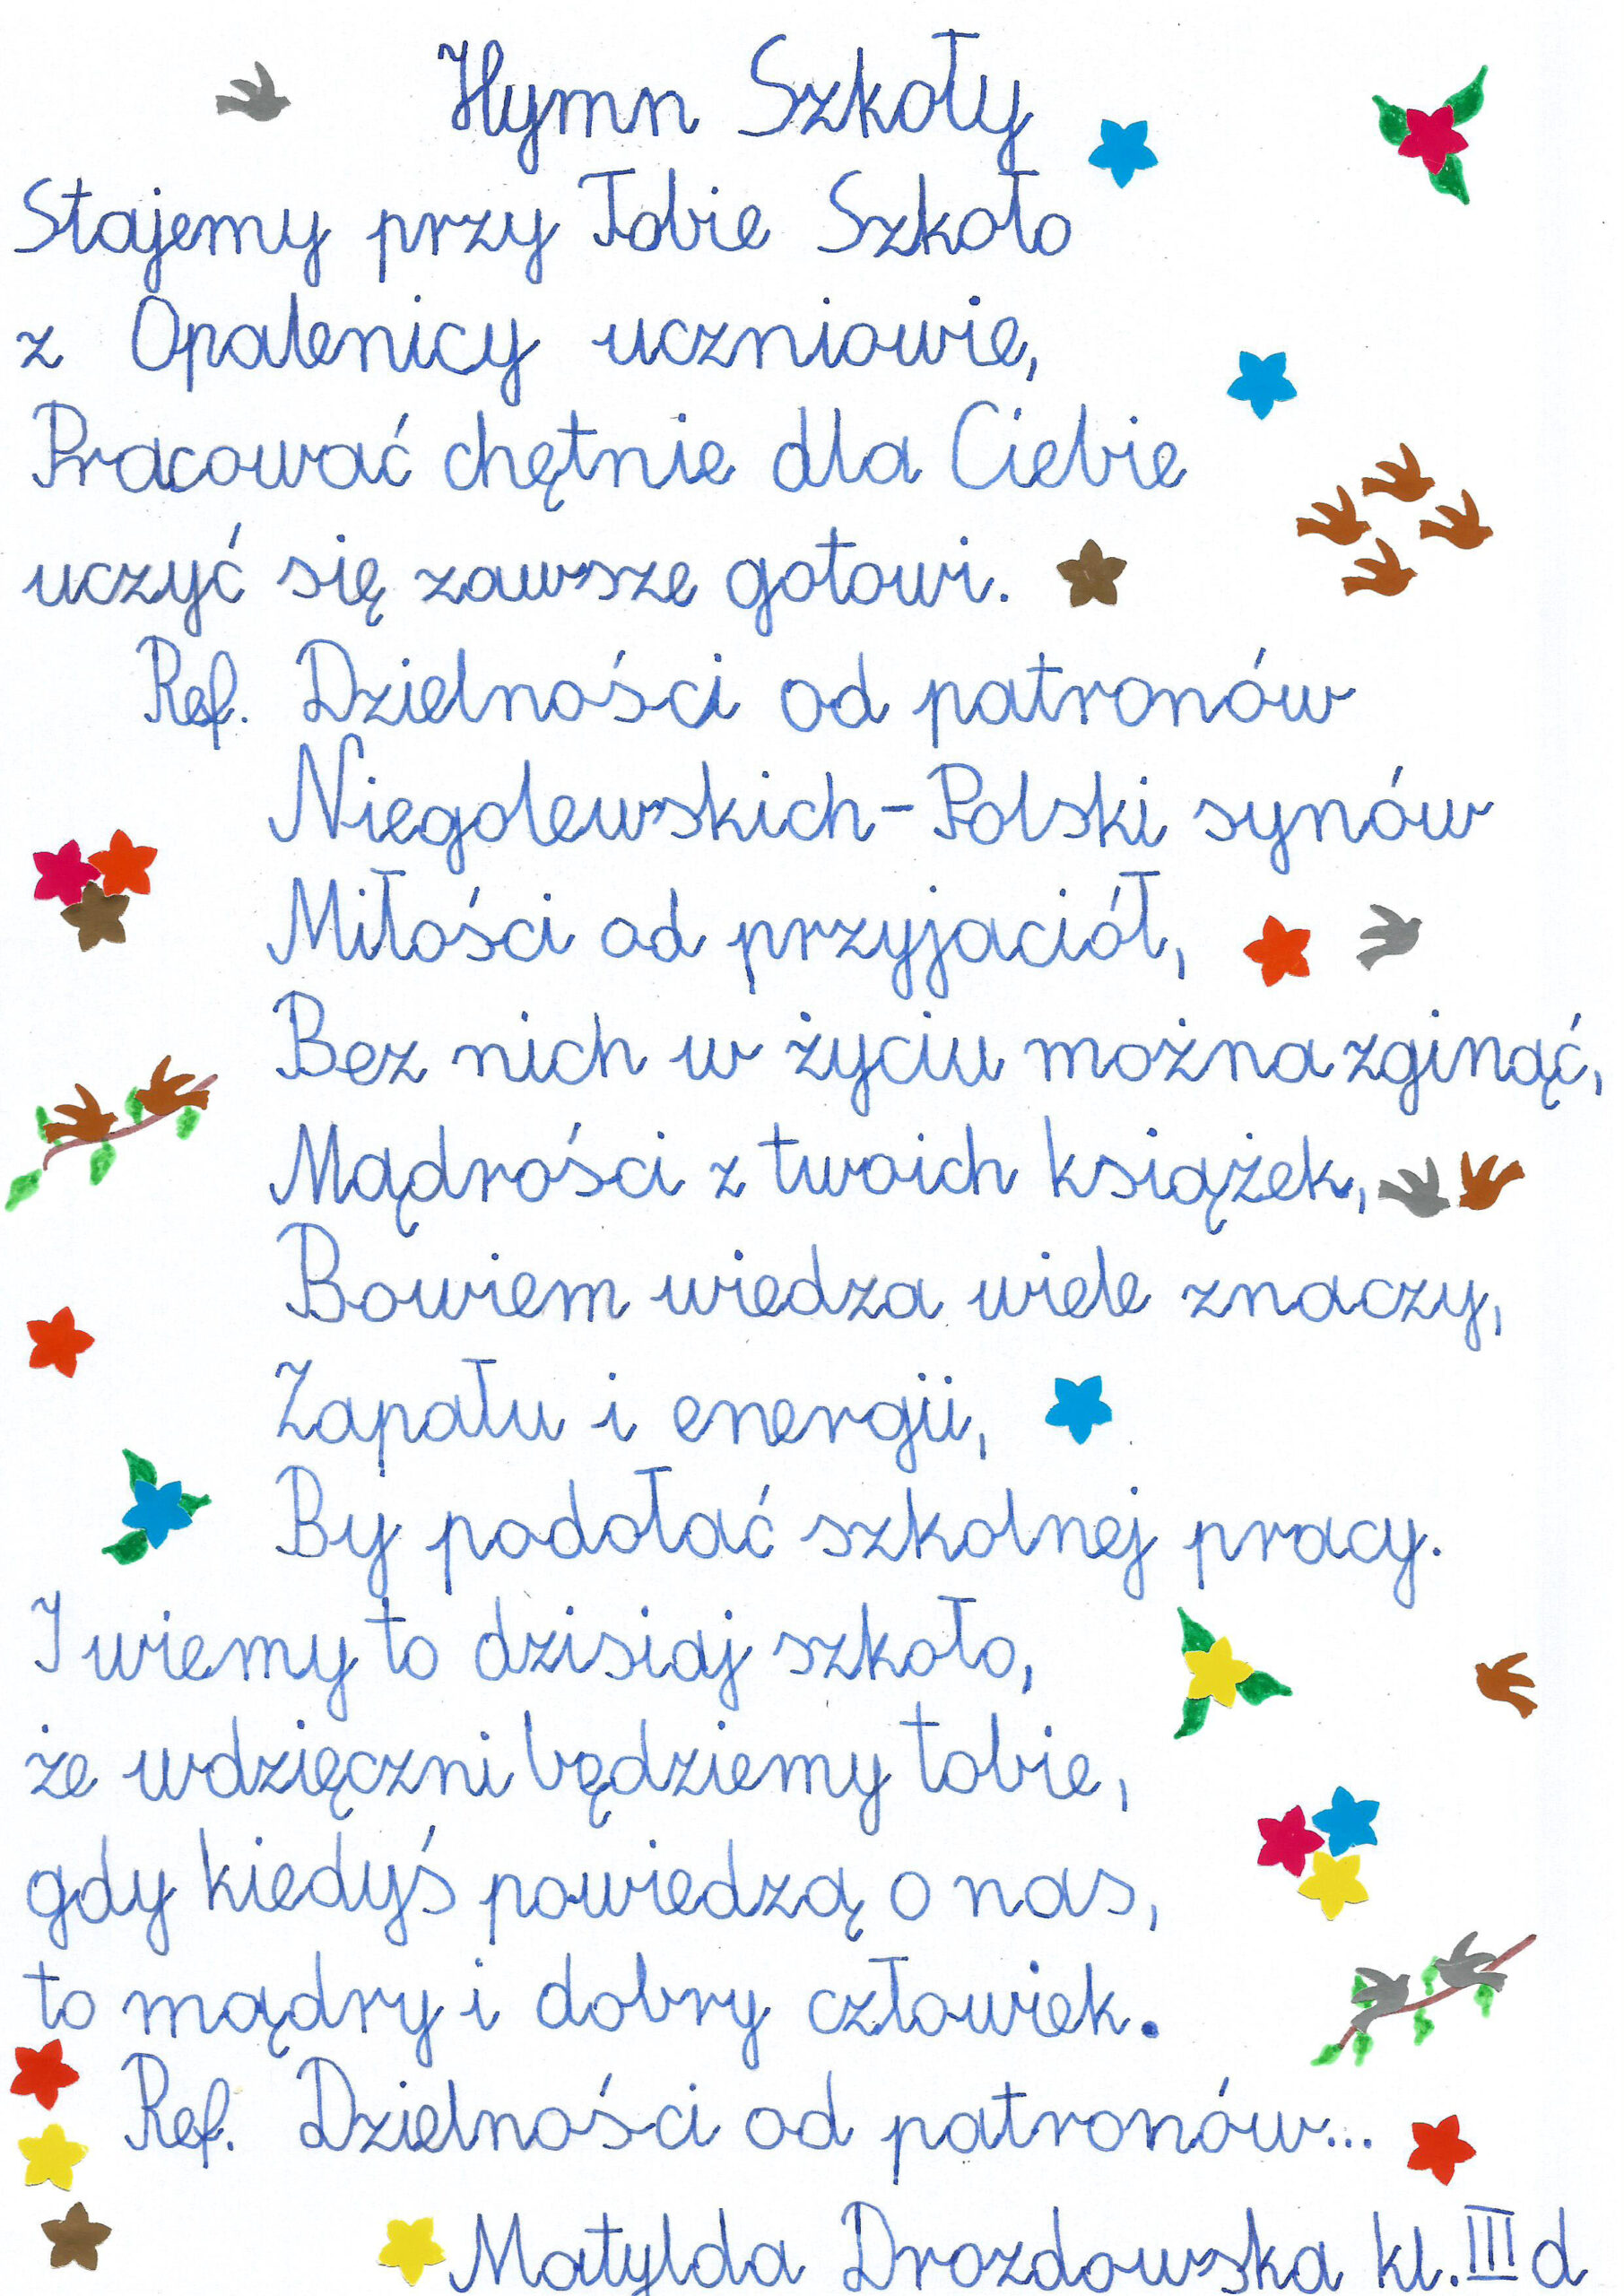 Hymn Szkoły
Stajemy przy Tobie Szkoło
z Opalenicy uczniowie,
Pracować chętnie dla Ciebie
uczyć się zawsze gotowi.
Ref. Dzielności od patronów
Niegolewskich-Polski synów
Miłości od przyjaciół,
Bez nich w życiu można zginąć,
Mądrości z twoich książek,
Bowiem wiedza wiele znaczy,
Zapału i energii,
By podołać szkolnej pracy.
I wiemy to dzisiaj szkoło,
że wdzięczni będziemy tobie,
gdy kiedyś powiedzą o nas,
to mądry i dobry człowiek.
Ref. Dzielności od patronów...
Matylda Drozdowska kl. III d